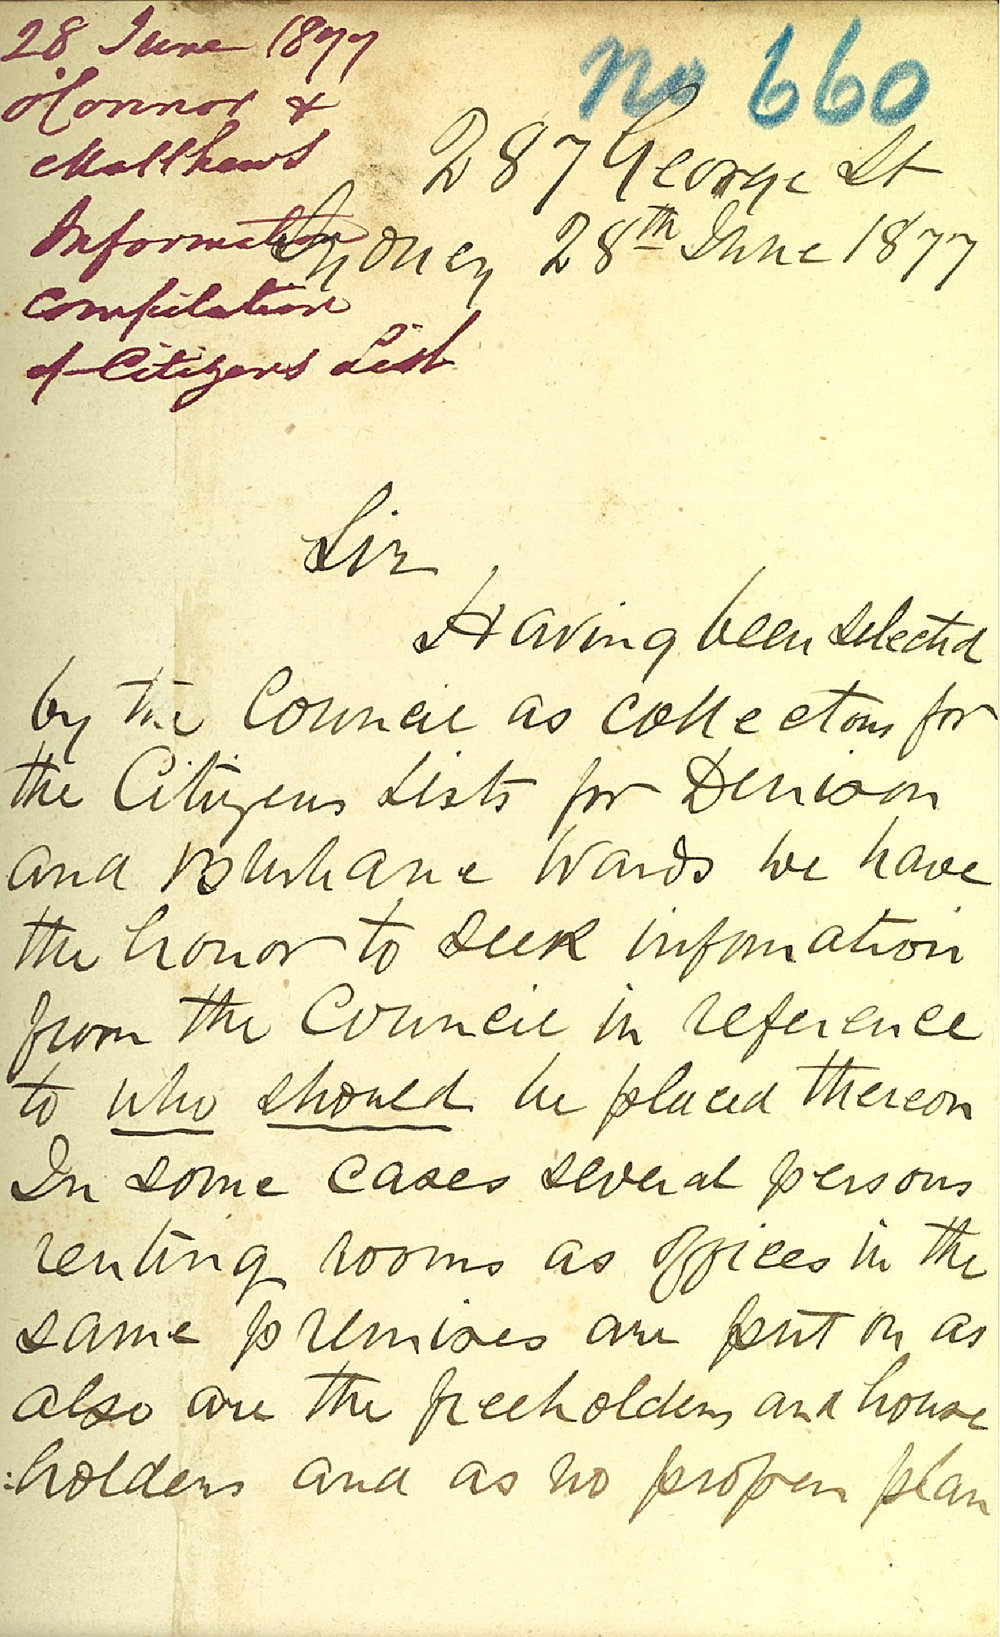 28 June 1877
O'Connor &
Matthews
Information
compilation
of Citizens List
No 660
287 George St
Sydney 28th June 1877
Sir
Having been selected
by the Council as collectors for
the Citizens Lists for Denison
and Brisbane Wards we have
the honor to seek information
from the Council in reference
to who should be placed thereon
In some cases several persons
renting rooms as offices in the
same premises are put on as
also are the freeholders and house
:holders and as no proper plan